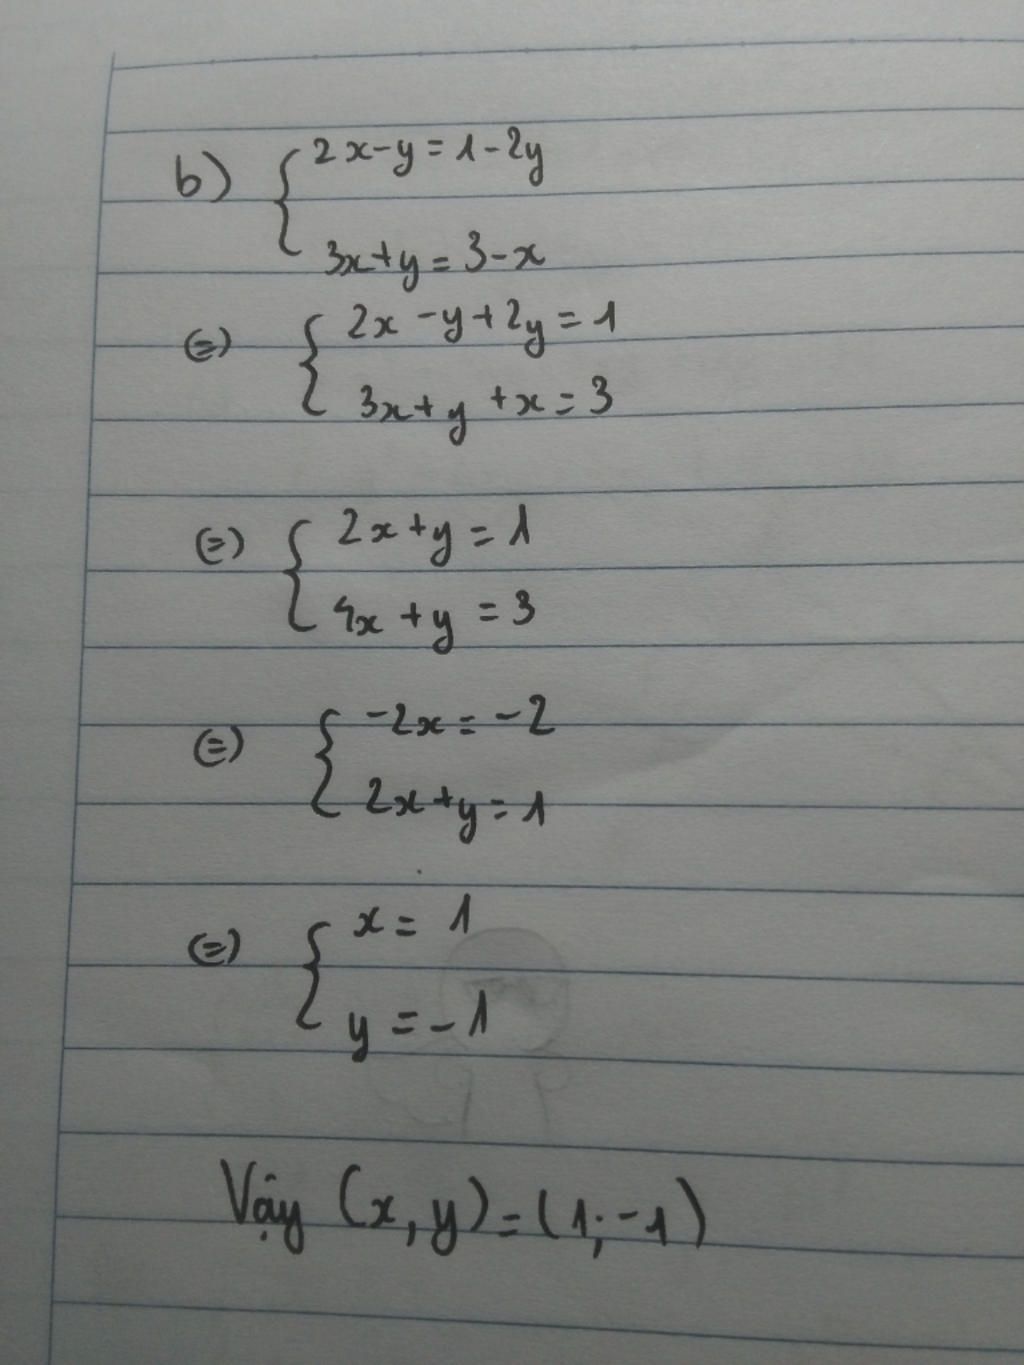 b) { 2x-y=1-2y
3x+y=3-x
(=) { 2x-y+2y=1
3x+y+x=3
(=) { 2x+y=1
4x+y=3
(=) { -2x=-2
2x+y=1
(=) { x=1
y=-1
Vậy (x,y)=(1;-1)